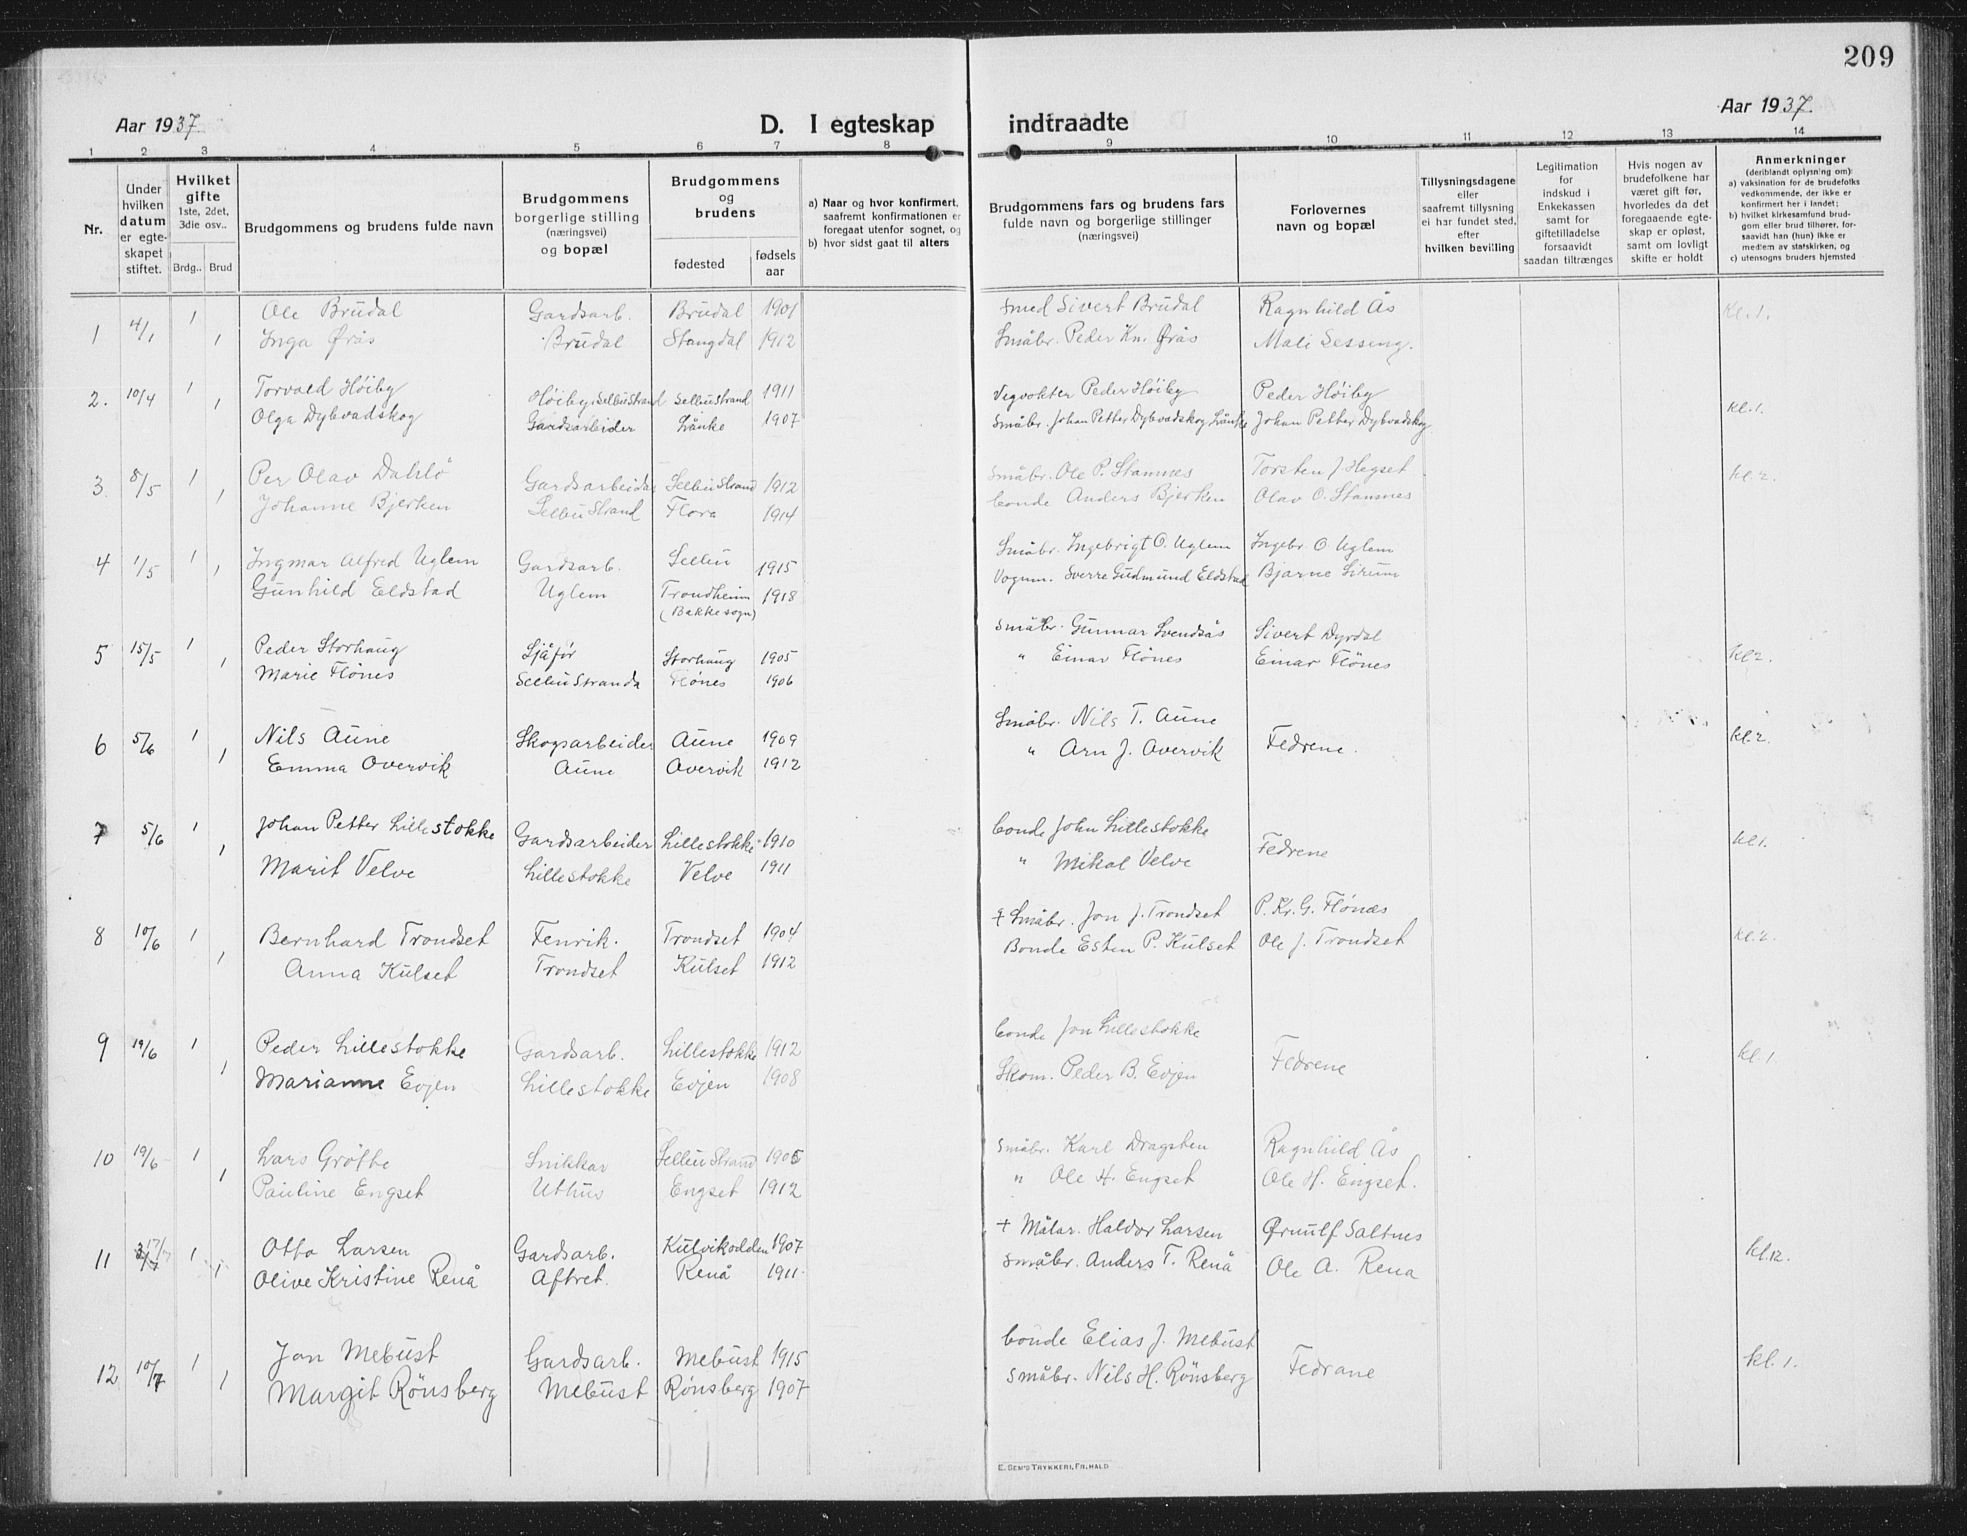 209
Aar 1937.
D. I egteskap
indtraadte
Aar 1937.
1 2 3 4 5 6 7 8 9 10 11 12 13 14
Nr.
Under hvilken datum er egteskapet stiftet.
Hvilket gifte 1ste, 2det, 3die osv..
Brdg.. Brud
Brudgommens og brudens fulde navn
Brudgommens borgerlige stilling (næringsvei) og bopæl
Brudgommens og brudens
fødested
fødsels aar
a) Naar og hvor konfirmert, saafremt konfirmationen er foregaat utenfor sognet, og
b) hvor sidst gaat til alters
Brudgommens fars og brudens fars fulde navn og borgerlige stillinger (næringsvei)
Forlovernes navn og bopæl
Tillysningsdagene eller saafremt tillysning ei har fundet sted, efter hvilken bevilling
Legitimation for indskud i Enkekassen samt for giftetilladelse forsaavidt saadan tiltrænges
Hvis nogen av brudefolkene har været gift før, hvorledes da det foregaaende egteskap er opløst, samt om lovligt skifte er holdt
Anmerkninger (deriblandt oplysning om):
a) vaksination for de brudefolks vedkommende, der ikke er konfirmert her i landet;
b) hvilket kirkesamfund brudgom eller brud tilhører, forsaavidt han (hun) ikke er medlem av statskirken, og
c) utensogns bruders hjemsted
1 4/1 1 Ole Brudal Gardsarb. Brudal 1901 Smed Sivert Brudal Ragnhild Ås kl.1.
1 Inga Øräs Brudal Stangdal 1912 Småbr. Peder Kn. Øräs Mali Sesseng.
2. 10/4 1 Torvald Høiby Høiby, Selbustrand Selbustrand 1911 Vegvokter Peder Høiby Peder Høiby kl.1.
1 Olga Dybvadskog Gardsarbeider Lånke 1907 Småbr. Johan Petter Dybvadskog Lånke Johan Petter Dybvadskog
3. 8/5 1 Per Olav Dahlö Gardsarbeider Selbustrand 1912 Småbr. Ole P. Stamnes Torsten J. Hegset kl.2.
1 Johanne Bjerken Selbustrand Flora 1914 bonde Anders Bjerken Olav O. Stamnes
4 1/5 1 Ingmar Alfred Uglem Gardsarb. Selbu 1915 Småbr. Ingebrigt O. Uglem Ingebr. O. Uglem
1 Gunhild Eldstad Uglem Trondheim (Bakke sogn) 1918 Vognm. Sverre Gudmund Eldstad Bjarne Lirum
5 15/5 1 Peder Storhaug Sjåfør Storhaug 1905 Småbr. Gunnar Svendsås Sivert Dyrdal kl2.
1 Marie Flönes Selbustranda Flönes 1906 " Einar Flönes Einar Flönes
6 5/6 1 Nils Aune Skogsarbeider Aune 1909 Småbr. Nils T. Aune Fedrene. kl.2.
1 Emma Overvik Aune Overvik 1912 " Arn J. Overvik
7 5/6 1 Johan Petter Lillestokke Gardsarbeider Lillestokke 1910 bonde John Lillestokke Fedrene kl1.
1 Marit Velve Lillestokke Velve 1911 " Mikal Velve
8 10/6 1 Bernhard Trondset Fenrik. Trondset 1904 Småbr. Jon J. Trondset P. Kr. G. Flönes kl.2.
1 Anna Kulset Trondset Kulset 1912 Bonde Esten P. Kulset Ole J. Trondset
9 19/6 1 Peder Lillestokke Gardsarb. Lillestokke 1912 bonde Jon Lillestokke Fedrene kl.1.
1 Marianne Evjen Lillestokke Evjen 1908 Skom. Peder B. Evjen
10 19/6 1 Lars Gröthe Snikkar Selbustrand 1905 Småbr. Karl Dragsten Ragnhild Ås
1 Pauline Engset Uthus Engset 1912 " Ole H. Engset Ole H. Engset.
11 17/7 1 Otto Larsen Gardsarb. Kulvikodden 1907 + Målar. Haldor Larsen Ørnulf Saltnes kl.12.
1 Olive Kristine Renå Aftret. Renå 1911 Småbr. Anders T. Renå Ole A. Rena
12 10/7 1 Jon Mebust Gardsarb. Mebust 1915 bonde Elias J. Mebust Fedrane kl.1.
1 Margit Rönsberg Mebust Rönsberg 1907 Småbr. Nils H. Rönsberg
E. Sem's Trykkeri, Fr.hald